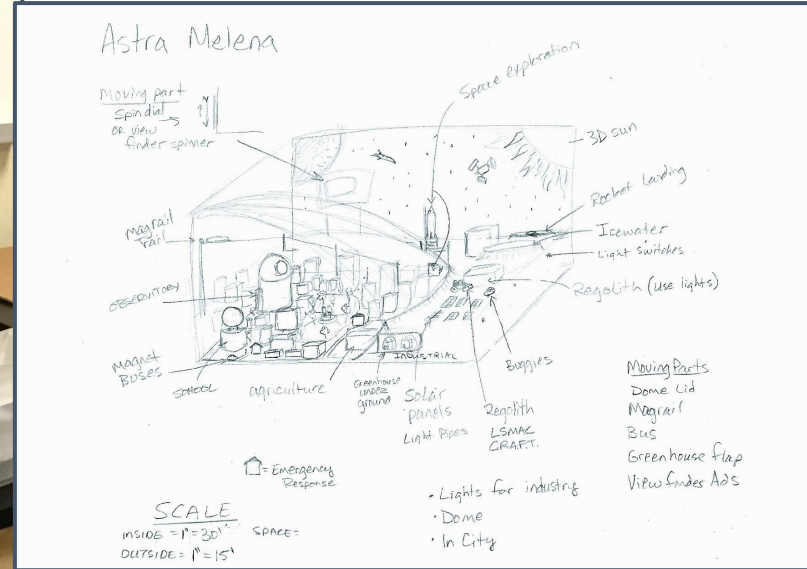 Astra Melena
Moving part
Spindial
or view
finder spinner
Space exploration
3D sun
Rocket Landing
Icewater
Light Switches
Regolith (use lights)
Magrail
Trail
OBSERVATORY
Magnet
BUSES
SCHOOL
agriculture
Greenhouse
under
ground
INDUSTRIAL
Solar
panels
Light Pipes
Regolith
LSMAC
C.R.A.F.T.
Buggies
Moving Parts
Dome Lid
Magrail
Bus
Greenhouse flap
Viewfinder Ads
= Emergency
Response
SCALE
INSIDE = 1" = 30'
SPACE =
OUTSIDE = 1" = 15'
• Lights for industry
• Dome
• In City